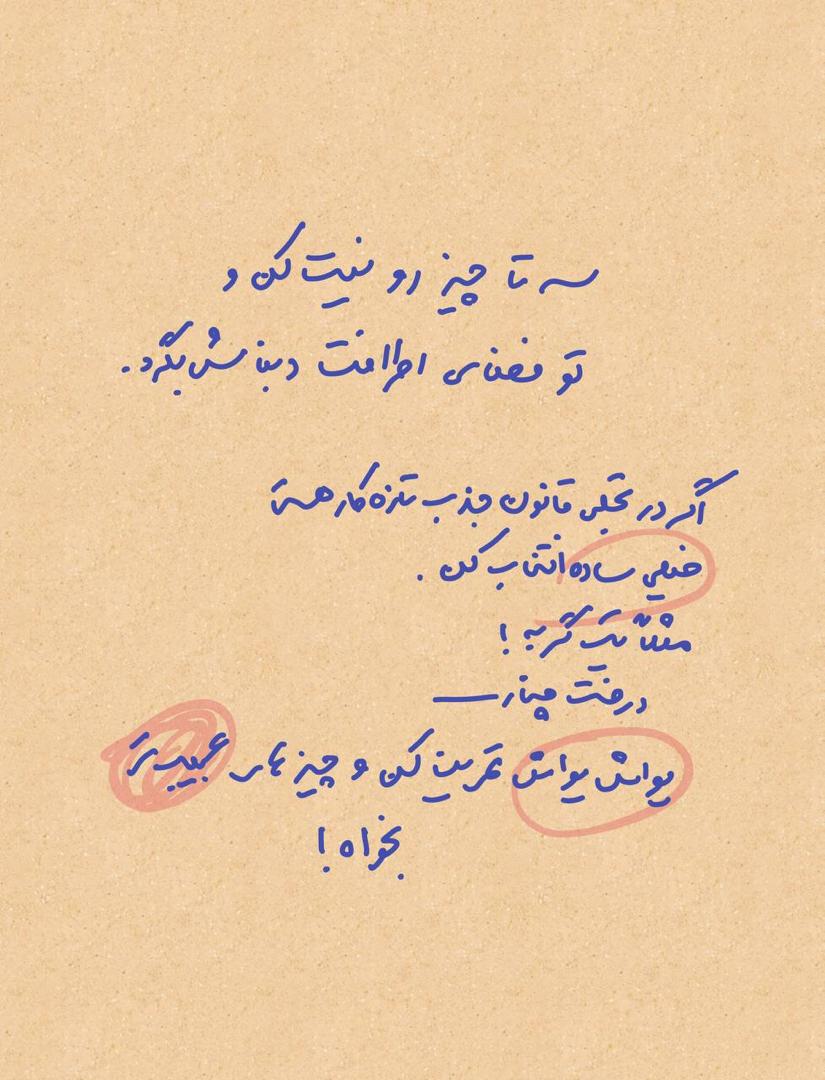 سه تا چیز رو نیت کن و
تو فضای اطرافت دنبالش بگرد.
اگر در تجلی قانون جذب تازه کار هستی
خیلی ساده انتخاب کن.
مثلاً یک گربه!
درخت چنار
یواش یواش تمرین کن و چیز های عجیب تر
بخواه!